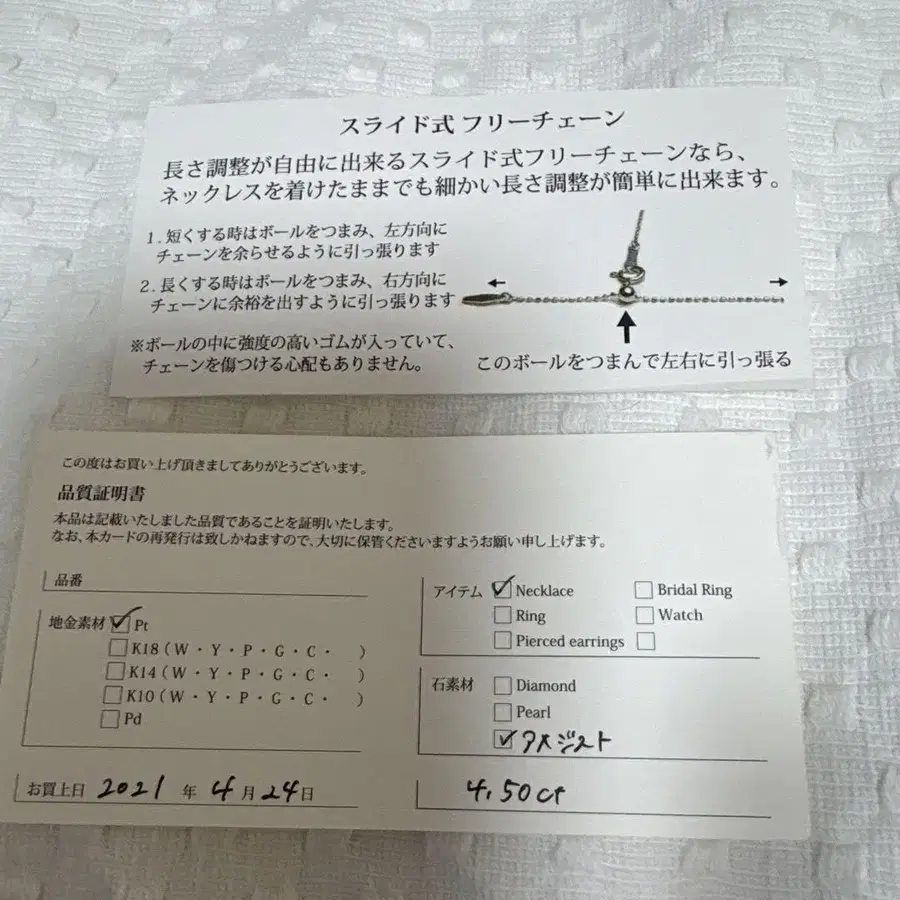 スライド式 フリーチェーン
長さ調整が自由に出来るスライド式フリーチェーンなら、
ネックレスを着けたままでも細かい長さ調整が簡単に出来ます。
1. 短くする時はボールをつまみ、左方向に
チェーンを余らせるように引っ張ります
2. 長くする時はボールをつまみ、右方向に
チェーンに余裕を出すように引っ張ります
※ボールの中に強度の高いゴムが入っていて、
チェーンを傷つける心配もありません。
このボールをつまんで左右に引っ張る
この度はお買い上げ頂きましてありがとうございます。
品質証明書
本品は記載いたしました品質であることを証明いたします。
なお、本カードの再発行は致しかねますので、大切に保管くださいますようお願い申し上げます。
品番
地金素材 Pt
K18 ( W ・ Y ・ P ・ G ・ C ・ )
K14 ( W ・ Y ・ P ・ G ・ C ・ )
K10 ( W ・ Y ・ P ・ G ・ C ・ )
Pd
お買上日 2021 年 4 月 24 日
アイテム Necklace Bridal Ring
Ring Watch
Pierced earrings
石素材 Diamond
Pearl
アメジスト
4.50ct